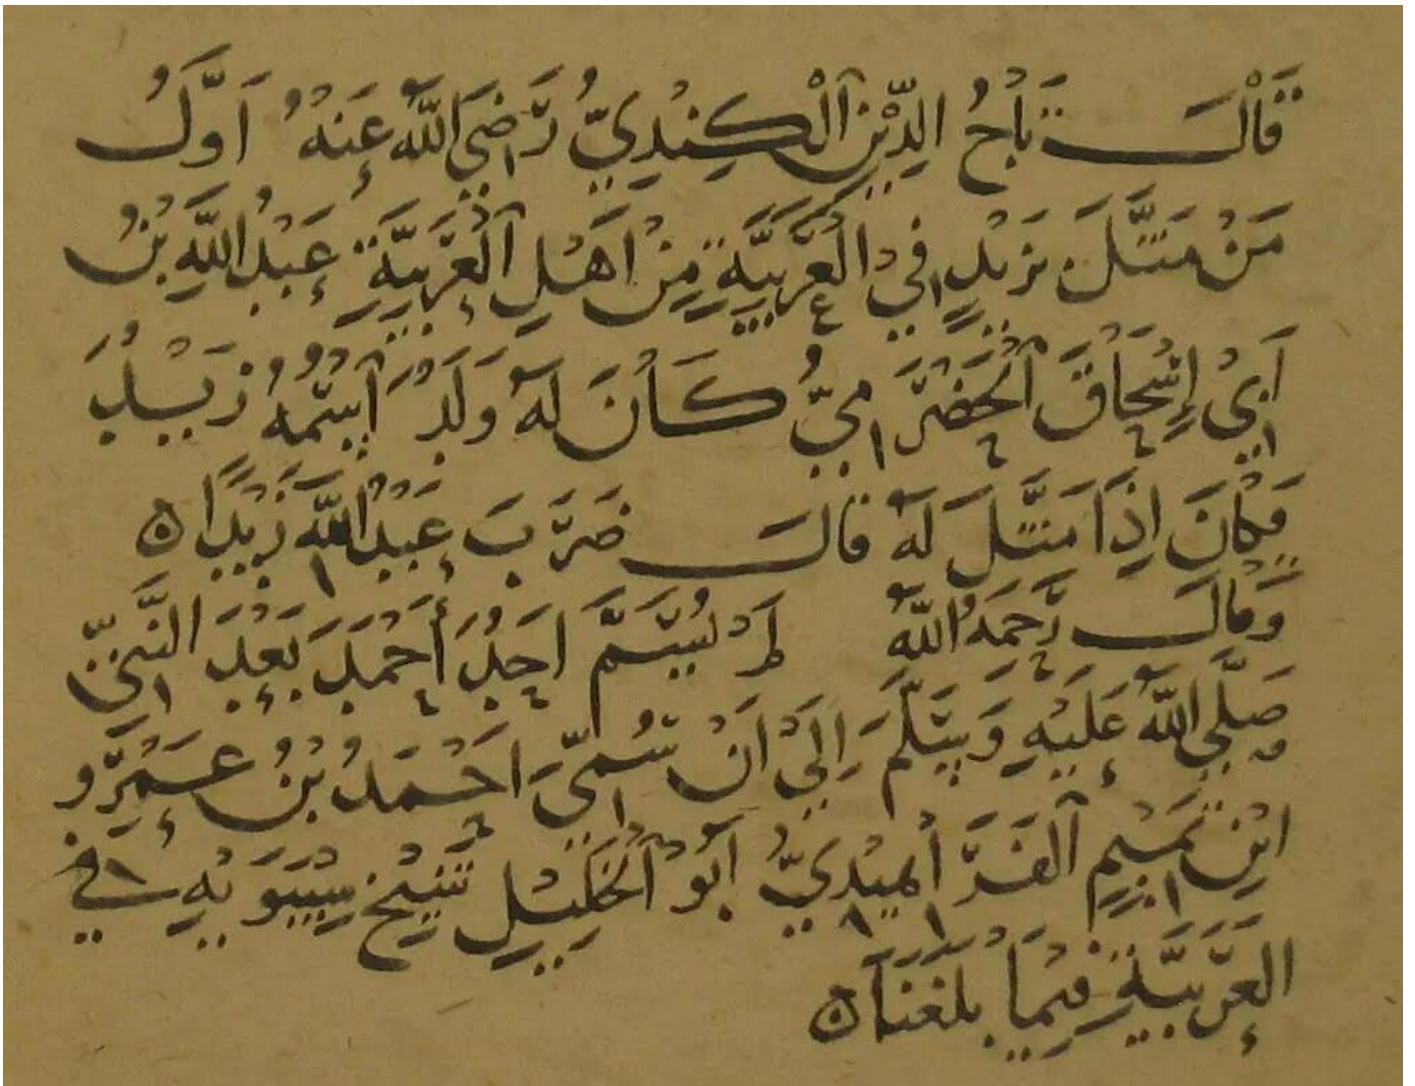 قَالَ تَاجُ الدِّينِ الْكِنْدِيُّ رَضِيَ اللَّهُ عَنْهُ أَوَّلُ
مَنْ مَثَّلَ بِزَيْدٍ فِي الْعَرَبِيَّةِ مِنْ أَهْلِ الْعَرَبِيَّةِ عَبْدُ اللَّهِ بْنُ
أَبِي إِسْحَاقَ الْحَضْرَمِيُّ كَانَ لَهُ وَلَدٌ اسْمُهُ زَيْدٌ
فَكَانَ إِذَا مَثَّلَ لَهُ قَالَ ضَرَبَ عَبْدُ اللَّهِ زَيْدًا ه
وَقَالَ رَحِمَهُ اللَّهُ لَمْ يُسَمَّ أَحَدٌ أَحْمَدَ بَعْدَ النَّبِيِّ
صَلَّى اللَّهُ عَلَيْهِ وَسَلَّمَ إِلَى أَنْ سُمِّيَ أَحْمَدُ بْنُ عَمْرِو
ابْنِ تَمِيمٍ الْفَرَاهِيدِيُّ أَبُو الْخَلِيلِ شَيْخِ سِيبَوَيْهِ فِي
الْعَرَبِيَّةِ فِيمَا بَلَغَنَا ه